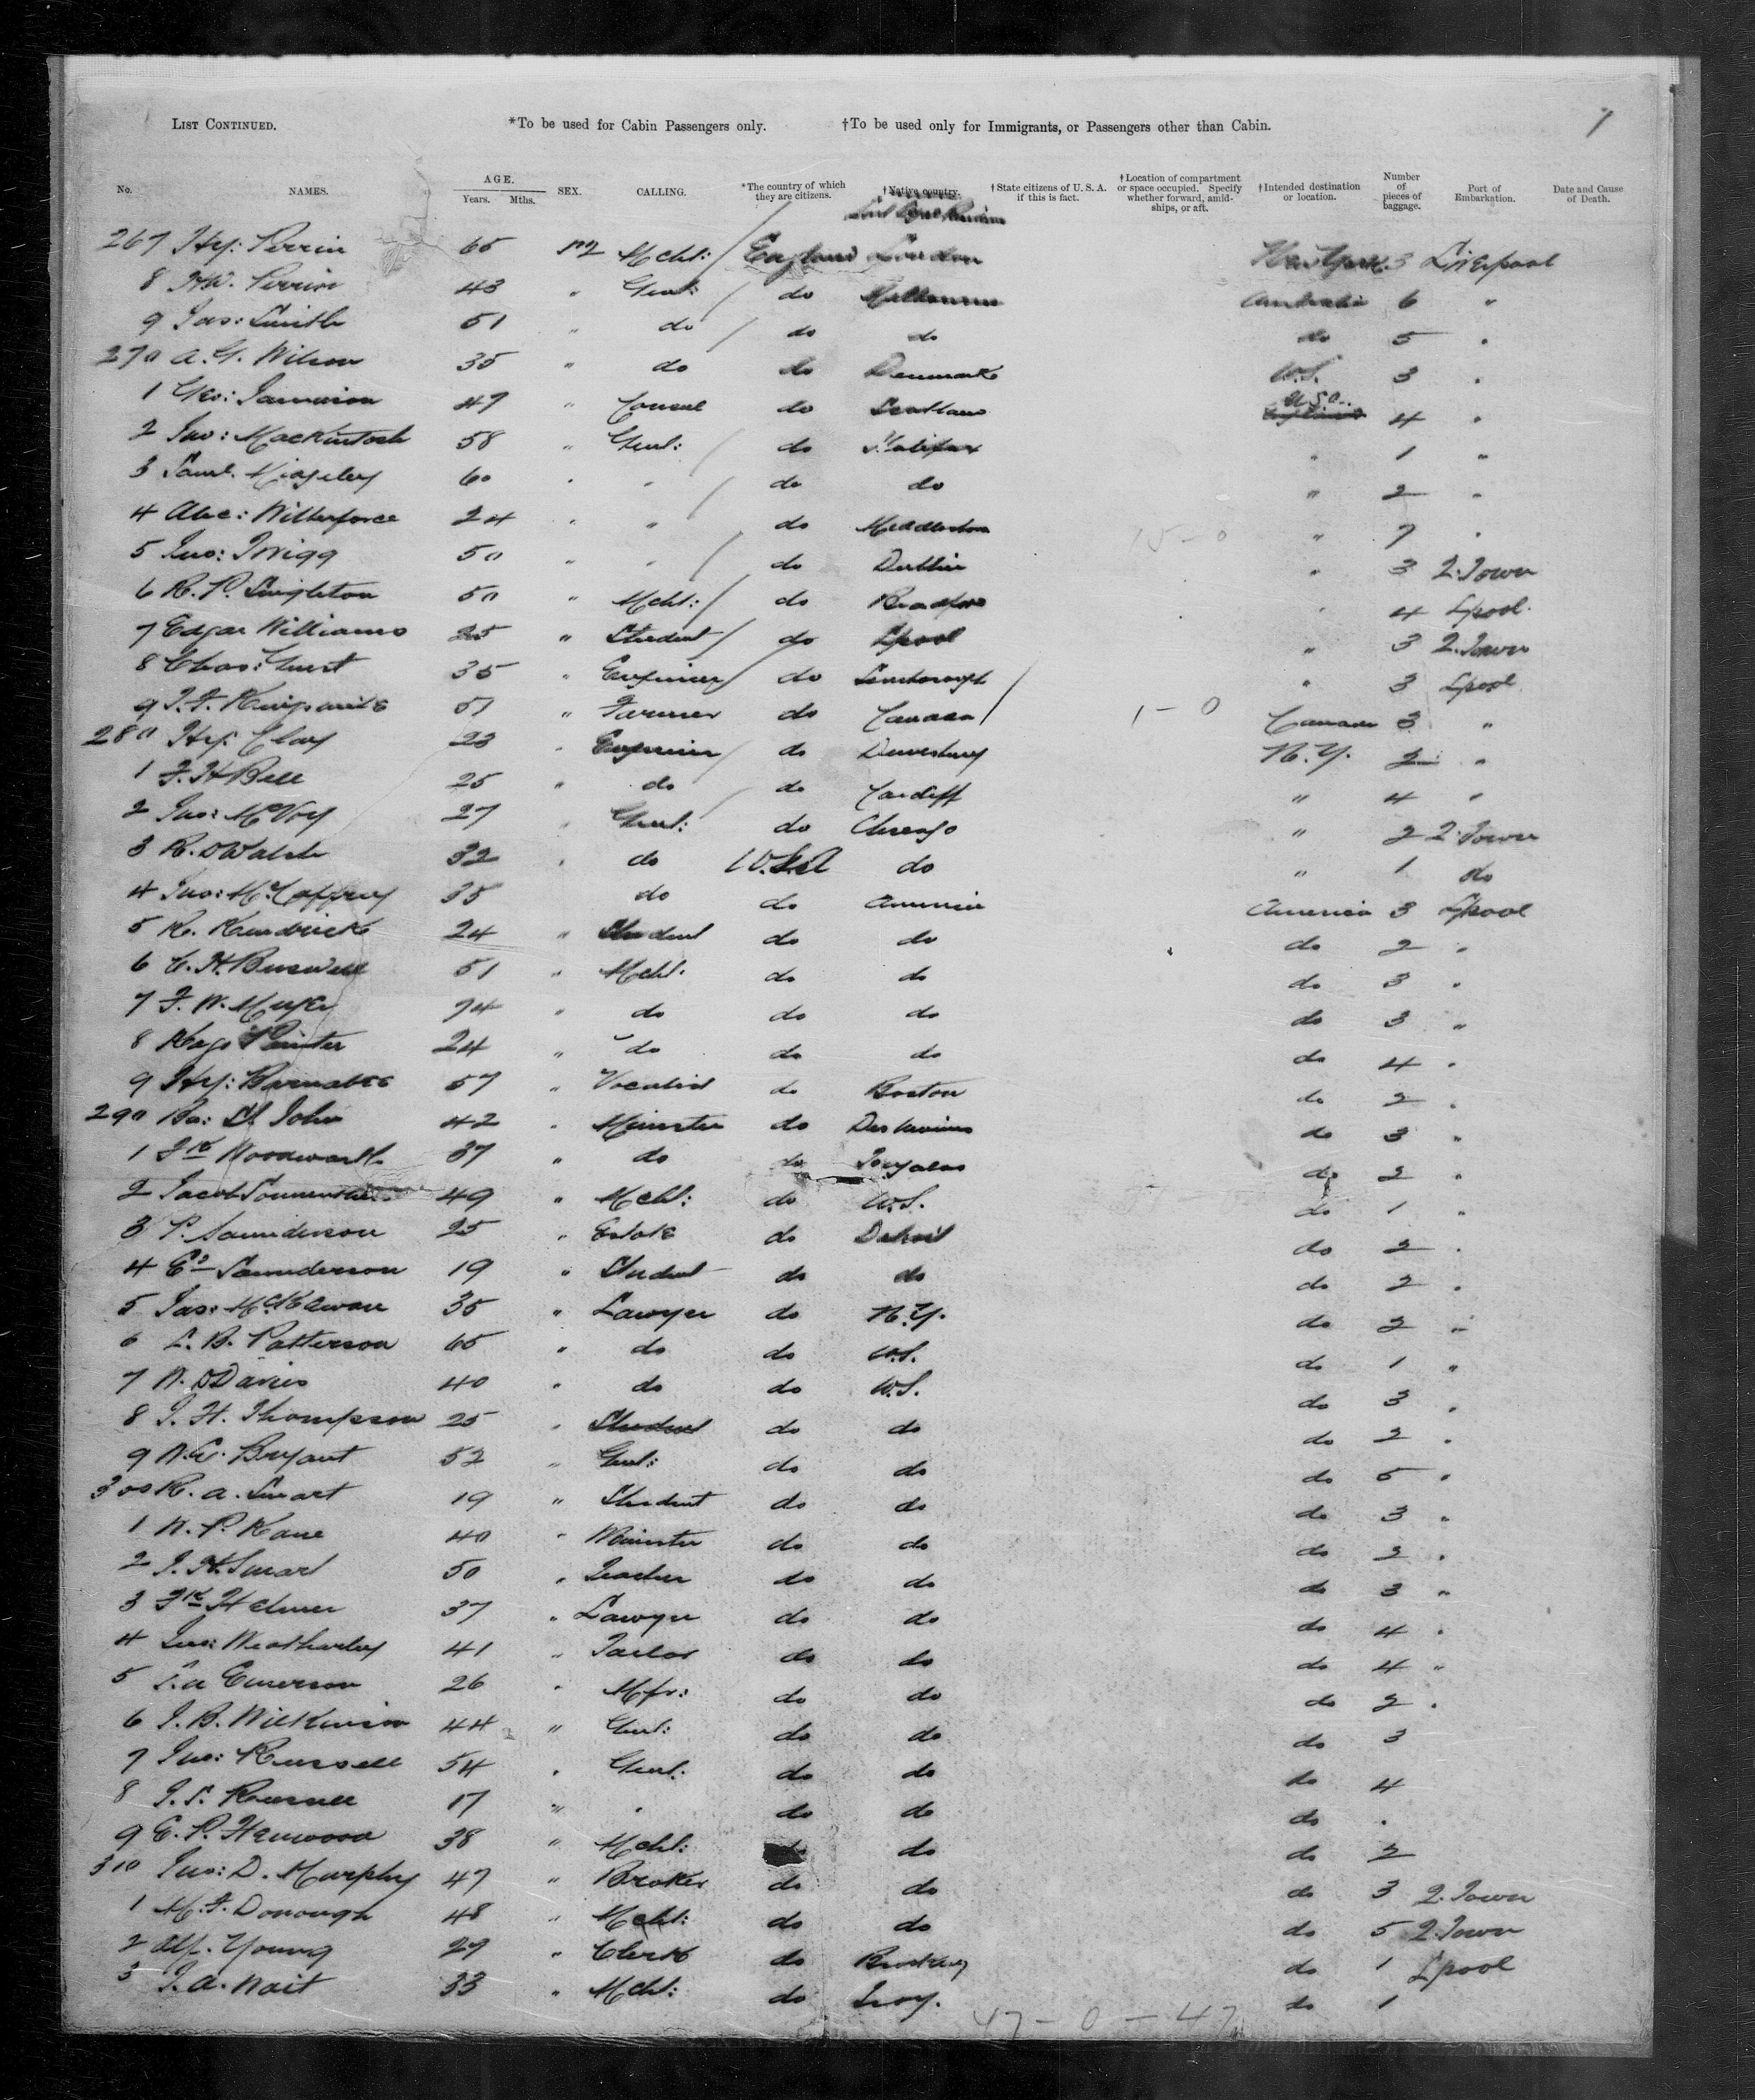 7
LIST CONTINUED. *To be used for Cabin Passengers only. †To be used only for Immigrants, or Passengers other than Cabin.
No. NAMES. AGE. Years. Mths. SEX. CALLING. *The country of which they are citizens. †Native country. †State citizens of U. S. A. if this is fact. †Location of compartment or space occupied. Specify whether forward, amidships, or aft. †Intended destination or location. Number of pieces of baggage. Port of Embarkation. Date and Cause of Death.
267 Hy: Perrin 65 m Mcht: England London New York 3 Liverpool
8 H.W. Perrin 43 " Gent: do Melbourne Australia 6 "
9 Jas: Smith 51 " do do do do 5 "
270 A. G. Wilson 35 " do do Denmark U.S. 3 "
1 Geo: Jamieson 47 " Consul do Scotland U.S.A. 4 "
2 Jno: Mackintosh 58 " Gent: do Halifax " 1 "
3 Saml. Midgeley 60 " " do do " 2 "
4 Alec: Wilberforce 24 " " do 15-0 " 7 "
5 Jno: Twigg 50 " " do Dublin " 3 Q. Town
6 R. P. Singleton 50 " Mcht: do Bradford " 4 Lpool.
7 Edgar Williams 25 " Student do Lpool " 3 Q. Town
8 Chas: Guest 35 " Engineer do Scarborough " 3 Lpool
9 51 " Farmer do Canada 1-0 Canada 3 "
280 Hy: Clay 23 " Engineer do Dewesbury N.Y. 2 "
1 F. H Bell 25 " do do Cardiff " 4 "
2 Jno: McVoy 27 " Gent: do Chicago " 2 Q. Town
3 R. D Walsh 32 " do U.S.A do " 1 do
4 Jno: McCaffrey 35 do do America America 3 Lpool
5 R. Kendrick 24 " Student do do do 2 "
6 C. H. Buswell 51 " Mcht. do do do 3 "
7 F. W. 74 " do do do do 3 "
8 Painter 24 " do do do do 4 "
9 Hy: Barnabee 57 " Vocalist do Boston do 2 "
290 St John 42 " Minister do Des Moines do 3 "
1 Frd Woodworth 37 " do do do 2 "
2 Jacob 49 " Mcht: do U.S. do 1 "
3 P. Saunderson 25 " Estate do Detroit do 2 "
4 Ed Saunderson 19 " Student do do do 2 "
5 Jas: McKewan 35 " Lawyer do N.Y. do 2 "
6 L. B. Patterson 65 " do do U.S. do 1 "
7 W. D Davies 40 " do do U.S. do 3 "
8 J. H. Thompson 25 " Student do do do 2 "
9 W. C. Bryant 52 " Gent: do do do 5 "
300 R. A. Smart 19 " Student do do do 3 "
1 W. P. Kane 40 " Minister do do do 2 "
2 J. H. Smart 50 " Teacher do do do 3 "
3 Frd Helmer 37 " Lawyer do do do 4 "
4 Jno: Weatherley 41 " Tailor do do do 4 "
5 L. A Emerson 26 " Mfr: do do do 2 "
6 J. B. Wilkinson 44 " Gent: do do do 3
7 Jno: Russell 54 " Gent: do do do 4
8 J. S. Russell 17 " " do do do "
9 E. P. Henwood 38 " Mcht: do do do 2
310 Jno: D. Murphy 47 " Broker do do do 3 Q. Town
1 M. F. Donough 48 " Mcht: do do do 5 Q. Town
2 Alf. Young 29 " Clerk do Brooklyn do 1 Lpool
3 J. A. Wait 33 " Mcht: do Troy. do 1
47-0-47